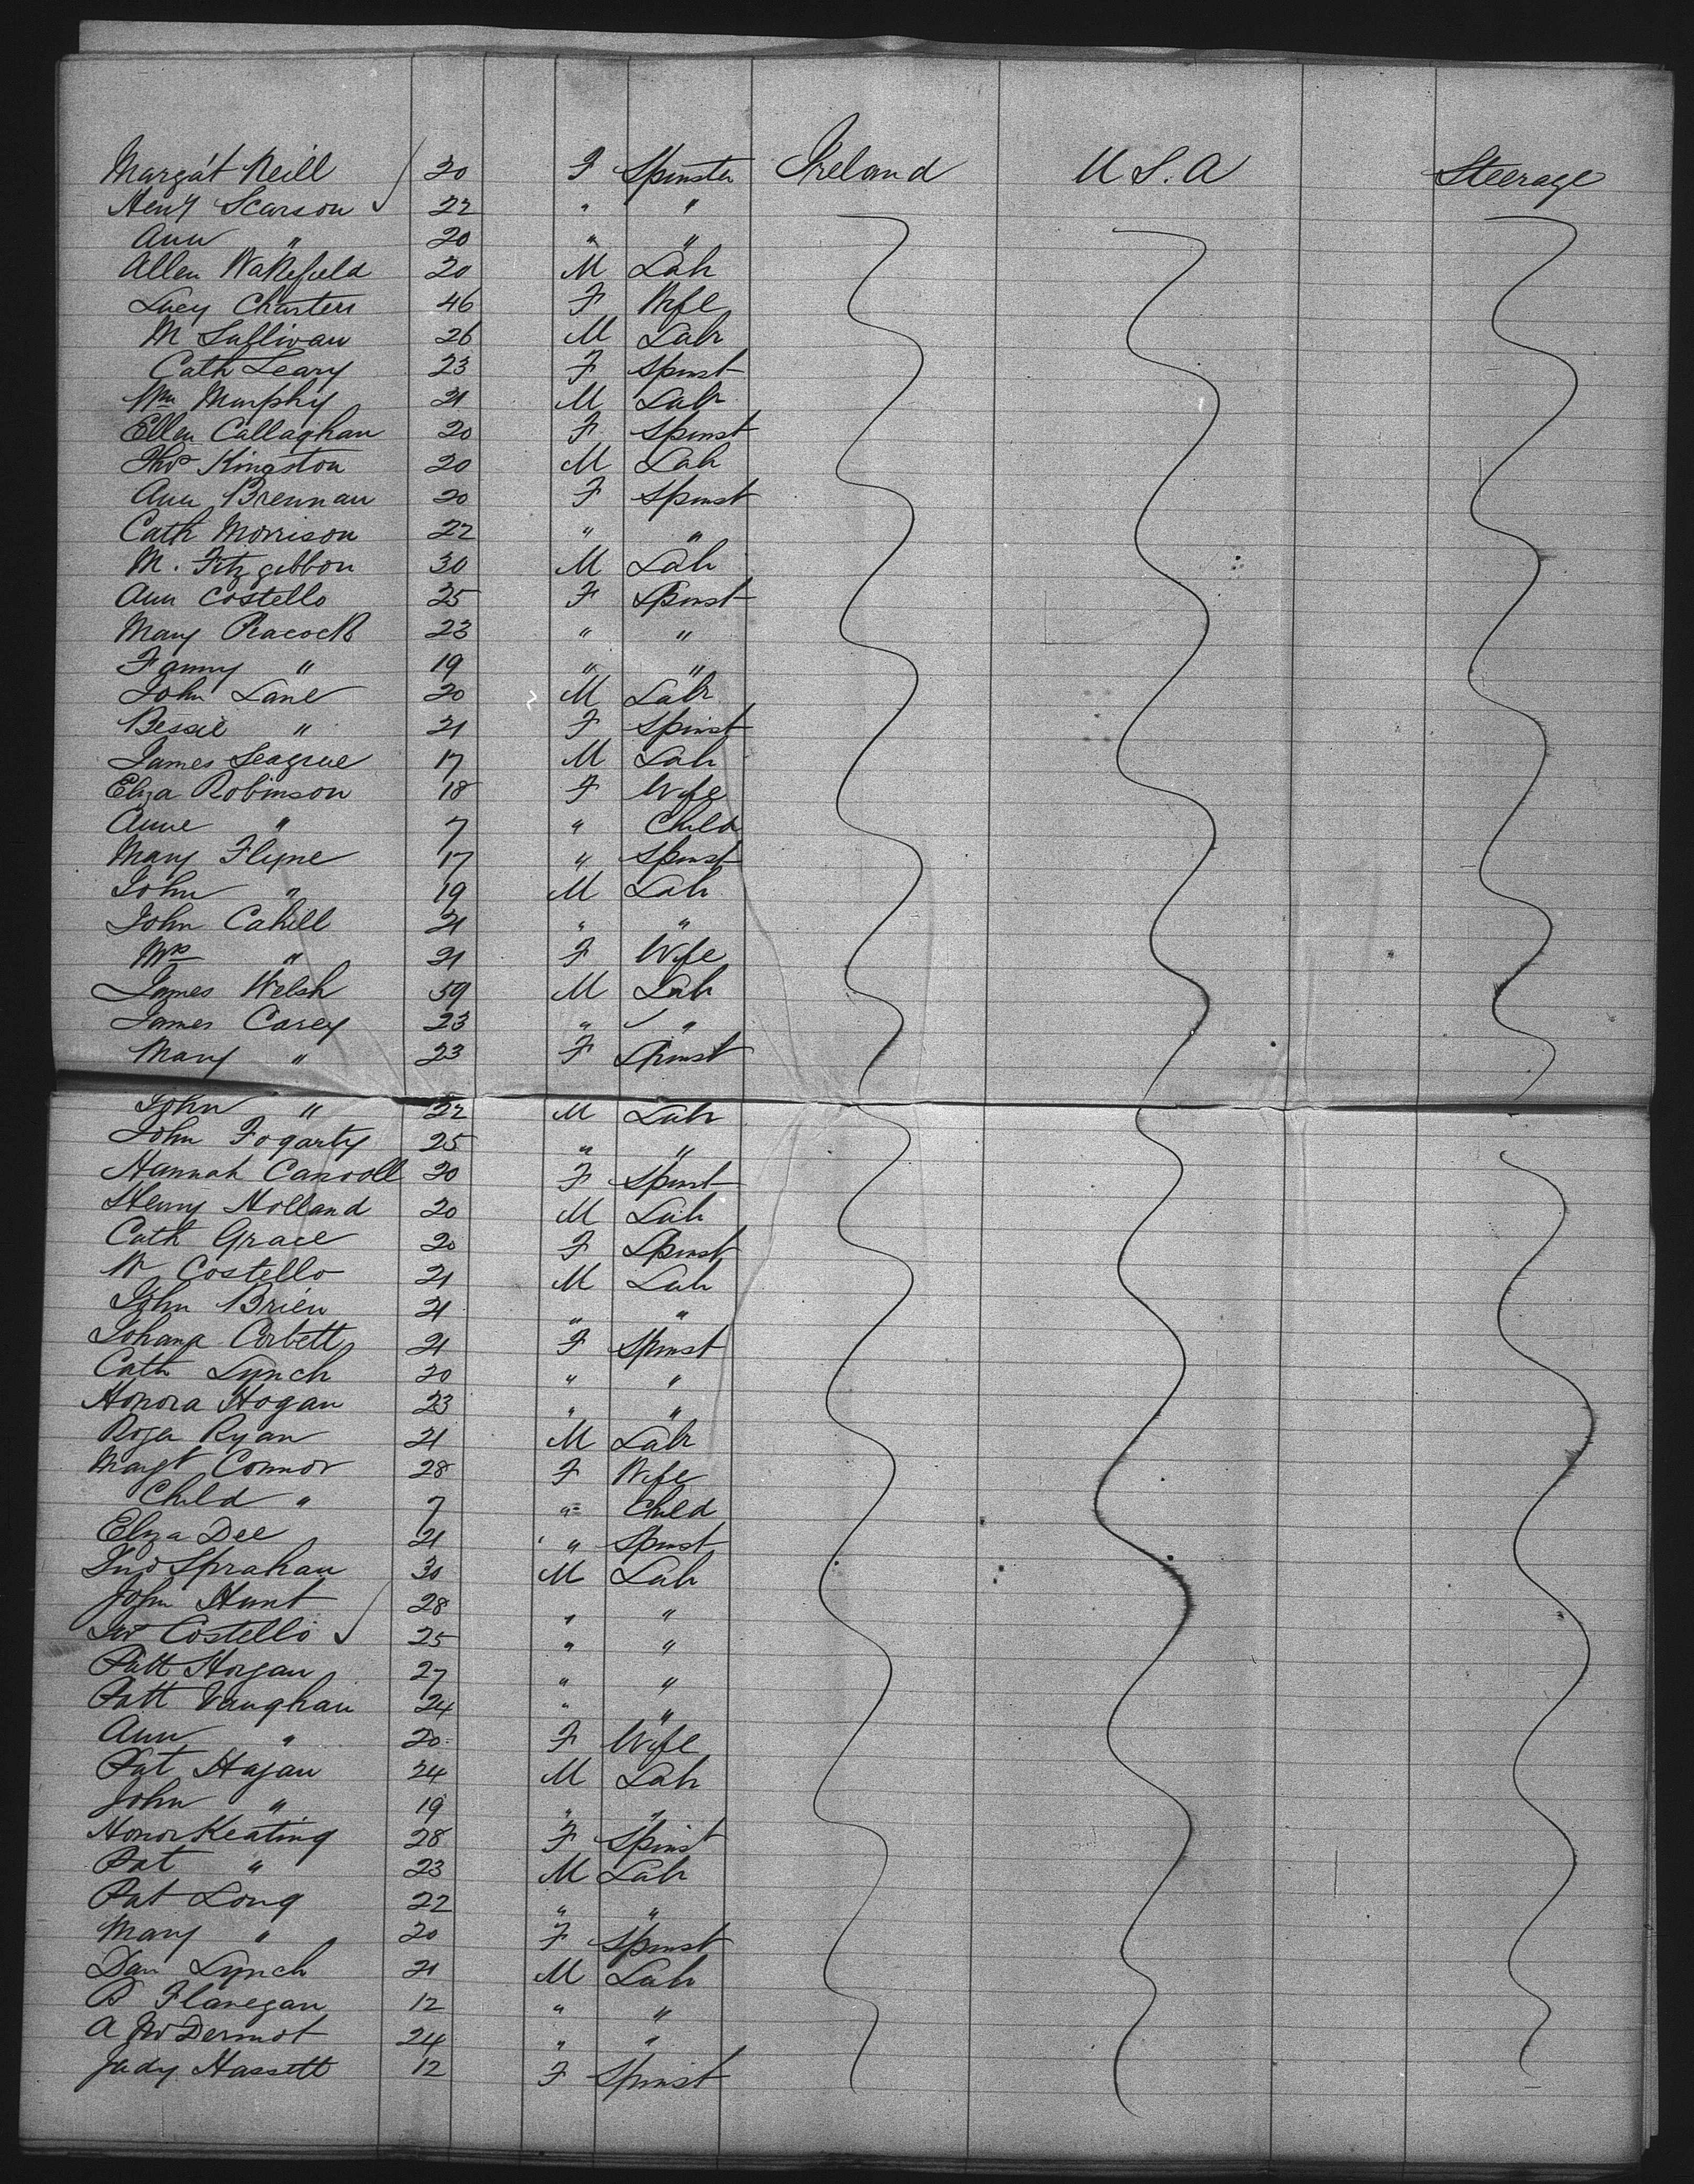 Margat Neill 20 F Spinster Ireland U.S.A Steerage
Heny Scarson 22 " "
Ann " 20 " "
Allen Wakefield 20 M Lab
Lucy Charters 46 F Wife
M Sullivan 26 M Labr
Cath Leary 23 F Spinst
Wm Murphy 21 M Labr
Ellen Callaghan 20 F Spinst
Thos Kingston 20 M Lab
Ann Brennan 20 F Spinst
Cath Morrison 22 " "
M. Fitzgibbon 30 M Lab
Ann Costello 25 F Spinst
Mary Peacock 23 " "
Fanny " 19 " "
John Lane 20 M Labr
Bessie " 21 F Spinst
James Seagrue 17 M Lab
Eliza Robinson 18 F Wife
Anne " 7 " Child
Mary Flyne 17 " Spinst
John " 19 M Lab
John Cahill 21 " "
Mrs " 21 F Wife
James Welsh 59 M Lab
James Carey 23 " "
Mary " 23 F Spinst
John " 22 M Labr
John Fogarty 25 " "
Hannah Carroll 20 F Spinst
Henry Holland 20 M Lab
Cath Grace 20 F Spinst
W Costello 21 M Lab
John Brien 21 " "
Johana Corbett 21 F Spinst
Cath Lynch 20 " "
Honora Hogan 23 " "
Roger Ryan 21 M Labr
Margt Connor 28 F Wife
Child " 7 " Child
Eliza Dee 21 " Spinst
Jno Sprahan 30 M Lab
John Hunt 28 " "
Costello 25 " "
Patt Horgan 27 " "
Patt Vaughan 24 " "
Ann " 20 F Wife
Pat Hagan 24 M Lab
John " 19 " "
Honor Keating 28 F Spinst
Pat " 23 M Labr
Pat Long 22 " "
Mary " 20 F Spinst
Dan Lynch 21 M Lab
P Flanegan 12 " "
A McDermot 24 " "
Judy Hassett 12 F Spinst